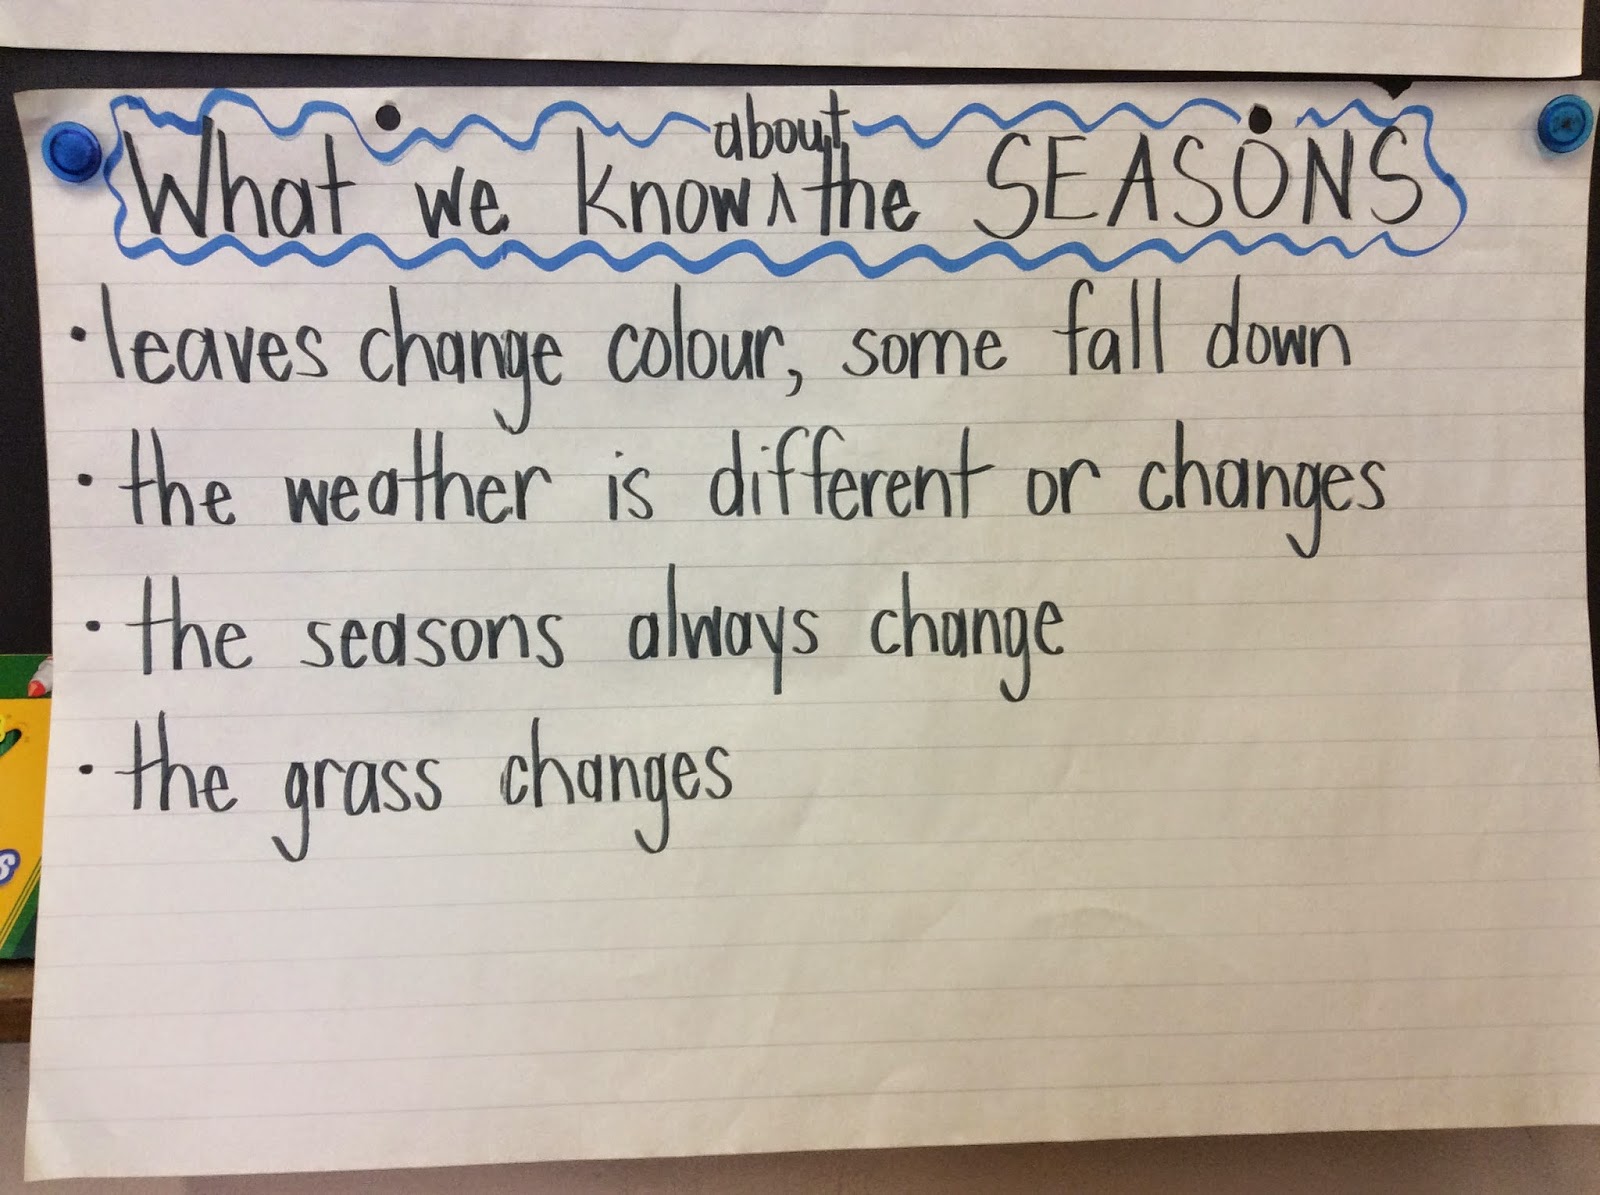 What we know ^ about the SEASONS
• leaves change colour, some fall down
• the weather is different or changes
• the seasons always change
• the grass changes